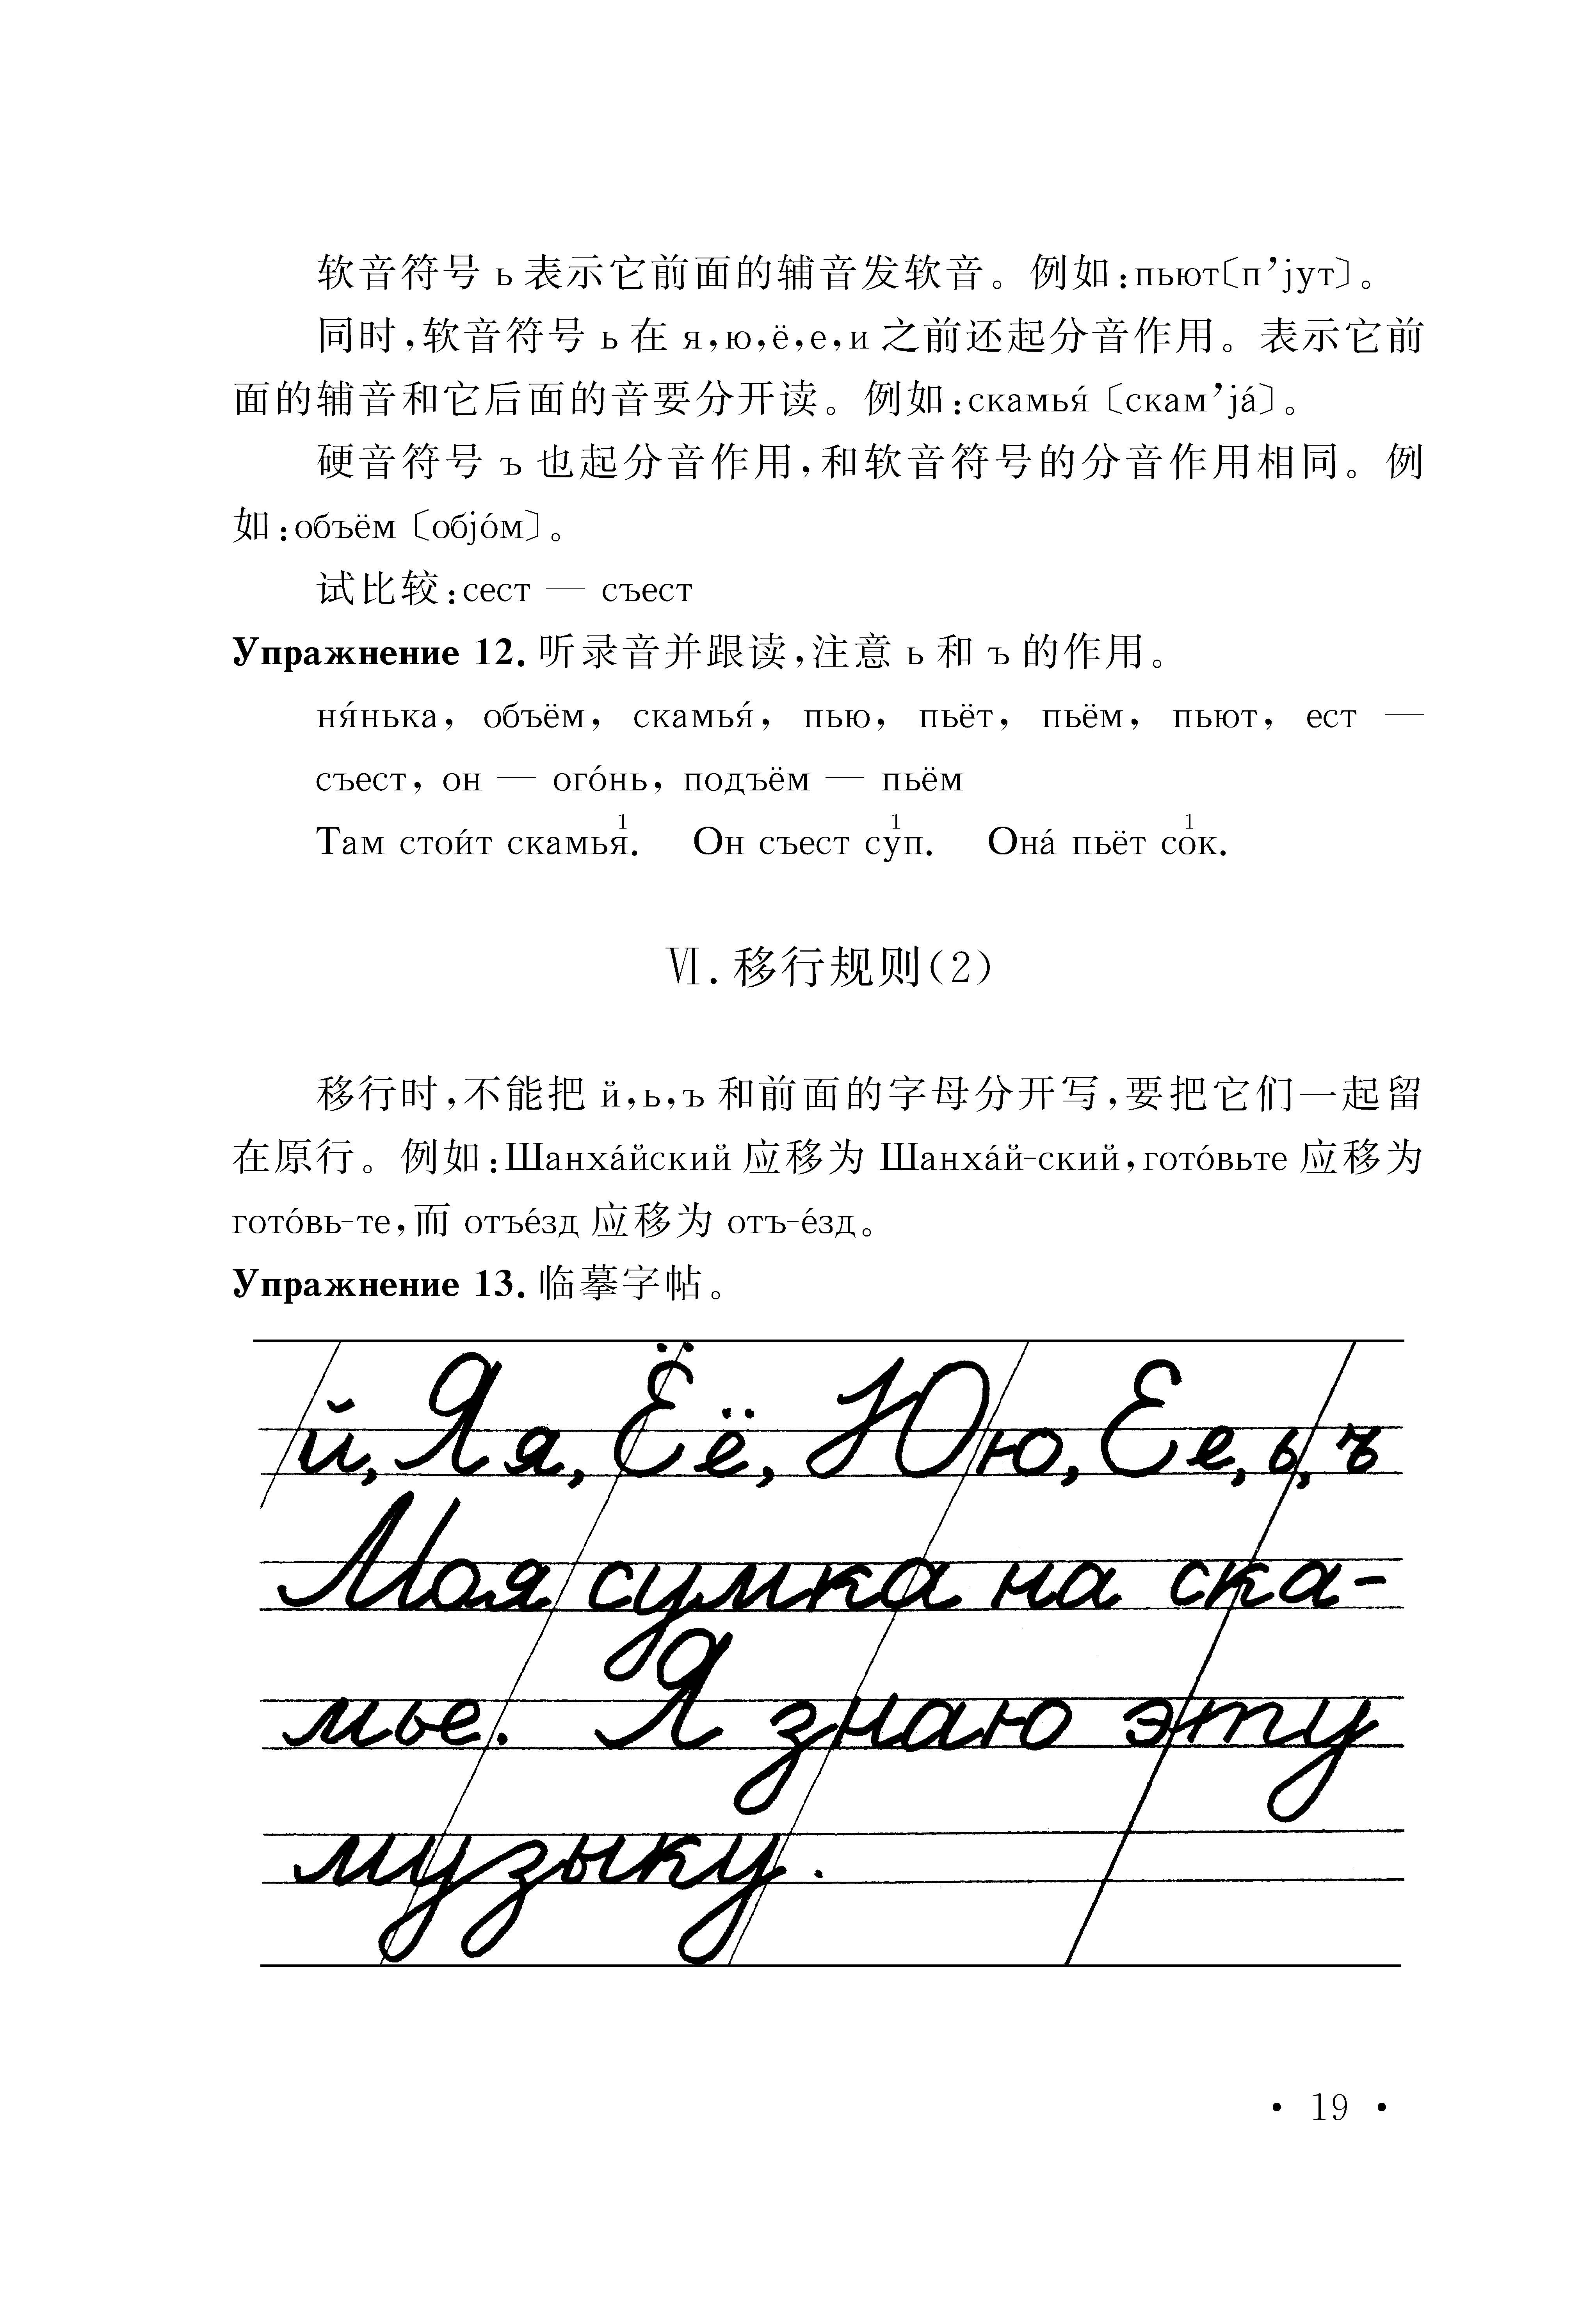 软音符号 ь 表示它前面的辅音发软音。例如:пьют〔п’jут〕。
同时,软音符号 ь 在 я,ю,ё,е,и 之前还起分音作用。表示它前
面的辅音和它后面的音要分开读。例如:скамья́〔скам’já〕。
硬音符号 ъ 也起分音作用,和软音符号的分音作用相同。例
如:объём〔обjóм〕。
试比较:сест — съест
Упражнение 12. 听录音并跟读,注意 ь 和 ъ 的作用。
ня́нька, объём, скамья́, пью, пьёт, пьём, пьют, ест —
съест, он — ого́нь, подъём — пьём
1 1 1
Там стои́т скамья. Он съест суп. Она́ пьёт сок.
Ⅵ.移行规则(2)
移行时,不能把 й,ь,ъ 和前面的字母分开写,要把它们一起留
在原行。例如:Шанха́йский 应移为 Шанха́й-ский,гото́вьте 应移为
гото́вь-те,而 отъе́зд 应移为 отъ-е́зд。
Упражнение 13. 临摹字帖。
й, Яя, Ёё, Юю, Ее, ь, ъ
Моя сумка на ска-
мье. Я знаю эту
музыку.
• 19 •